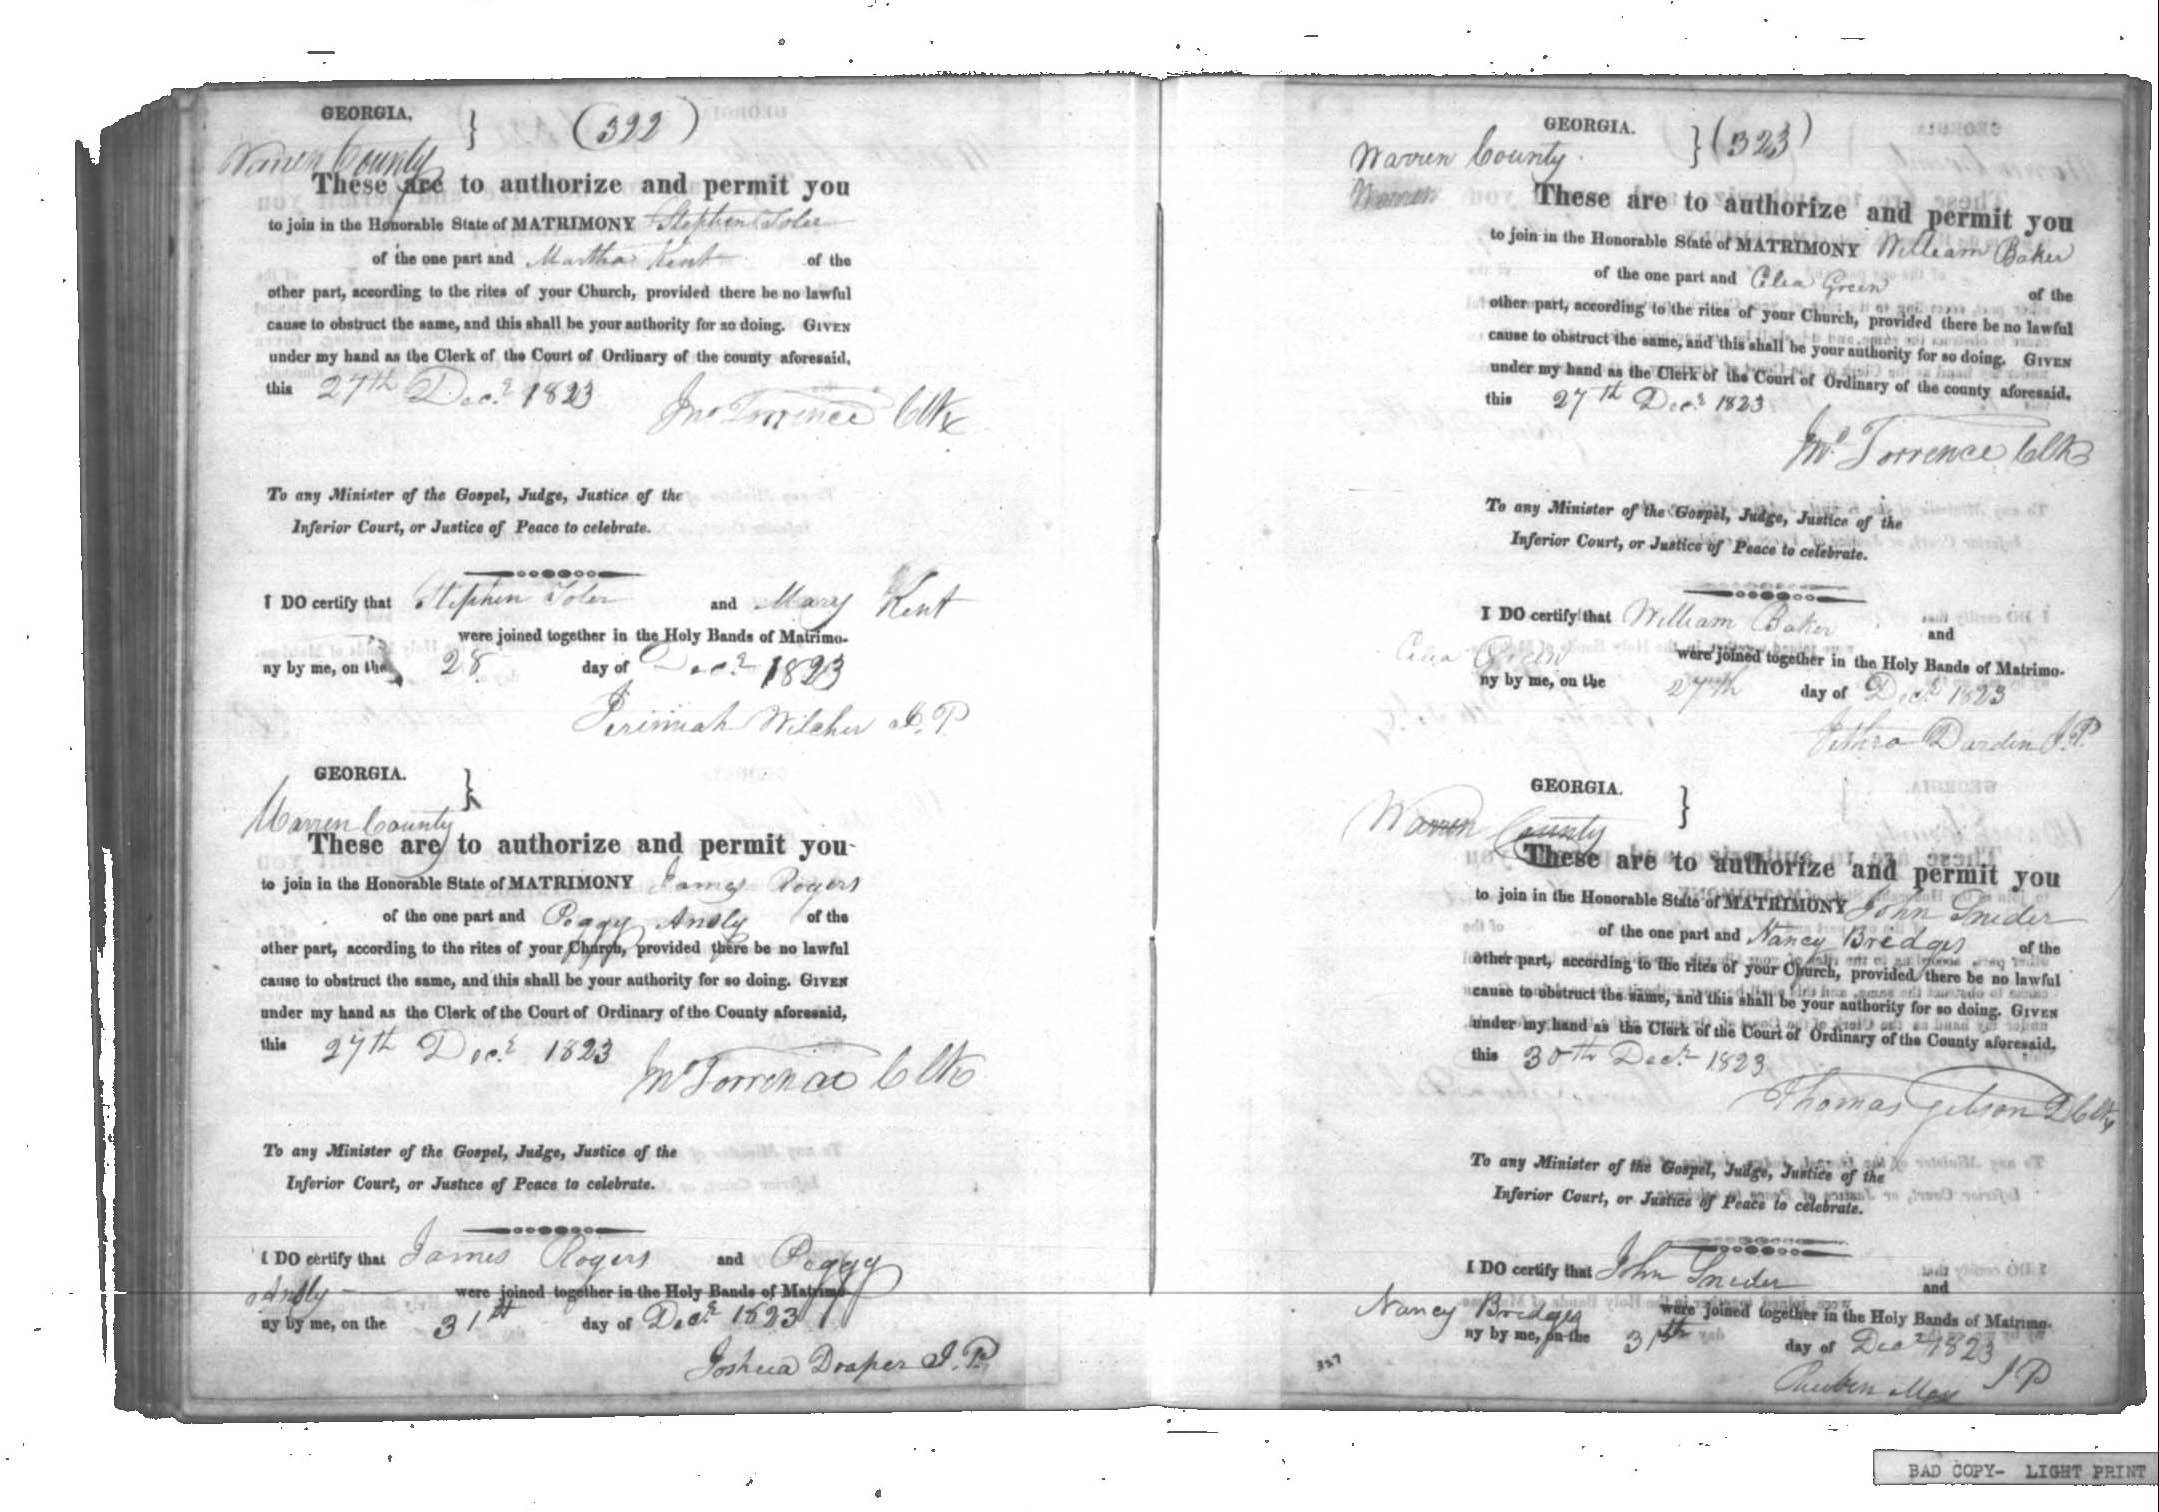 GEORGIA. } (322)
Warren County
These are to authorize and permit you
to join in the Honorable State of MATRIMONY Stephen Toler
of the one part and Martha Kent of the
other part, according to the rites of your Church, provided there be no lawful
cause to obstruct the same, and this shall be your authority for so doing. GIVEN
under my hand as the Clerk of the Court of Ordinary of the county aforesaid,
this 27th Decr 1823
Jno Torrence Clk
To any Minister of the Gospel, Judge, Justice of the
Inferior Court, or Justice of Peace to celebrate.
I DO certify that Stephen Toler and Mary Kent
were joined together in the Holy Bands of Matrimo-
ny by me, on the 28 day of Decr 1823
Jerimiah Wilcher J.P.
GEORGIA. }
Warren County
These are to authorize and permit you
to join in the Honorable State of MATRIMONY James Rogers
of the one part and Peggy Ansly of the
other part, according to the rites of your Church, provided there be no lawful
cause to obstruct the same, and this shall be your authority for so doing. GIVEN
under my hand as the Clerk of the Court of Ordinary of the County aforesaid,
this 27th Decr 1823
Jno Torrence Clk
To any Minister of the Gospel, Judge, Justice of the
Inferior Court, or Justice of Peace to celebrate.
I DO certify that James Rogers and Peggy
Ansly were joined together in the Holy Bands of Matrimo-
ny by me, on the 31st day of Decr 1823
Joshua Draper J.P.
GEORGIA. } (323)
Warren County.
Warren
These are to authorize and permit you
to join in the Honorable State of MATRIMONY William Baker
of the one part and Celia Green of the
other part, according to the rites of your Church, provided there be no lawful
cause to obstruct the same, and this shall be your authority for so doing. GIVEN
under my hand as the Clerk of the Court of Ordinary of the county aforesaid,
this 27th Decr 1823
Jno Torrence Clk
To any Minister of the Gospel, Judge, Justice of the
Inferior Court, or Justice of Peace to celebrate.
I DO certify that William Baker and
Celia Green were joined together in the Holy Bands of Matrimo-
ny by me, on the 27th day of Decr 1823
Jethro Darden J.P.
GEORGIA. }
Warren County
These are to authorize and permit you
to join in the Honorable State of MATRIMONY John Snider
of the one part and Nancy Bredges of the
other part, according to the rites of your Church, provided there be no lawful
cause to obstruct the same, and this shall be your authority for so doing. GIVEN
under my hand as the Clerk of the Court of Ordinary of the County aforesaid,
this 30th Decr 1823
Thomas Gibson D Clk
To any Minister of the Gospel, Judge, Justice of the
Inferior Court, or Justice of Peace to celebrate.
I DO certify that John Snider and
Nancy Bredges were joined together in the Holy Bands of Matrimo-
ny by me, on the 31th day of Decr 1823
Reuben May J P
327
BAD COPY- LIGHT PRINT